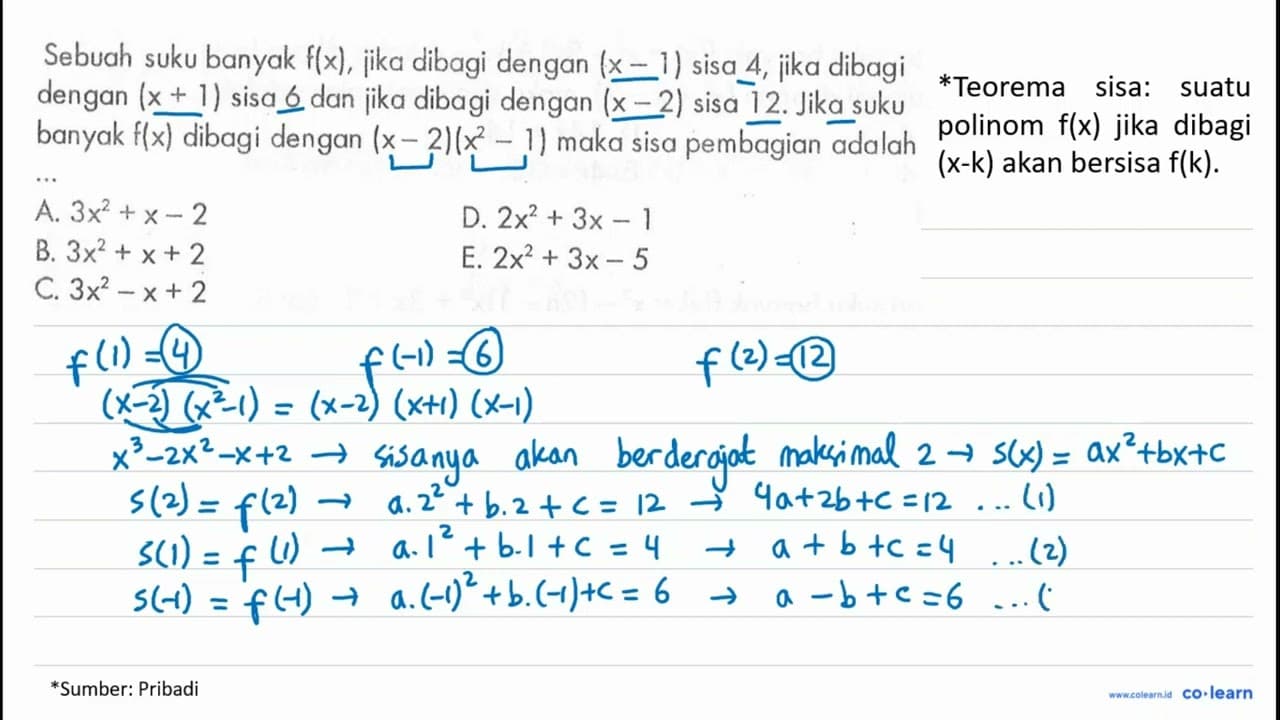 Sebuah suku banyak f(x), jika dibagi dengan (x – 1) sisa 4, jika dibagi
dengan (x + 1) sisa 6 dan jika dibagi dengan (x – 2) sisa 12. Jika suku
banyak f(x) dibagi dengan (x – 2)(x² – 1) maka sisa pembagian adalah
...
A. 3x² + x – 2
B. 3x² + x + 2
C. 3x² – x + 2
D. 2x² + 3x – 1
E. 2x² + 3x – 5
*Teorema sisa: suatu
polinom f(x) jika dibagi
(x-k) akan bersisa f(k).
f(1) = 4 f(-1) = 6 f(2) = 12
(x-2) (x²-1) = (x-2) (x+1) (x-1)
x³-2x²-x+2 → sisanya akan berderajat maksimal 2 → s(x) = ax²+bx+c
s(2) = f(2) → a.2² + b.2 + c = 12 → 4a+2b+c = 12 ...(1)
s(1) = f(1) → a.1² + b.1 + c = 4 → a + b + c = 4 ...(2)
s(-1) = f(-1) → a.(-1)² + b.(-1)+c = 6 → a - b + c = 6 ...(
*Sumber: Pribadi
www.colearn.id co·learn